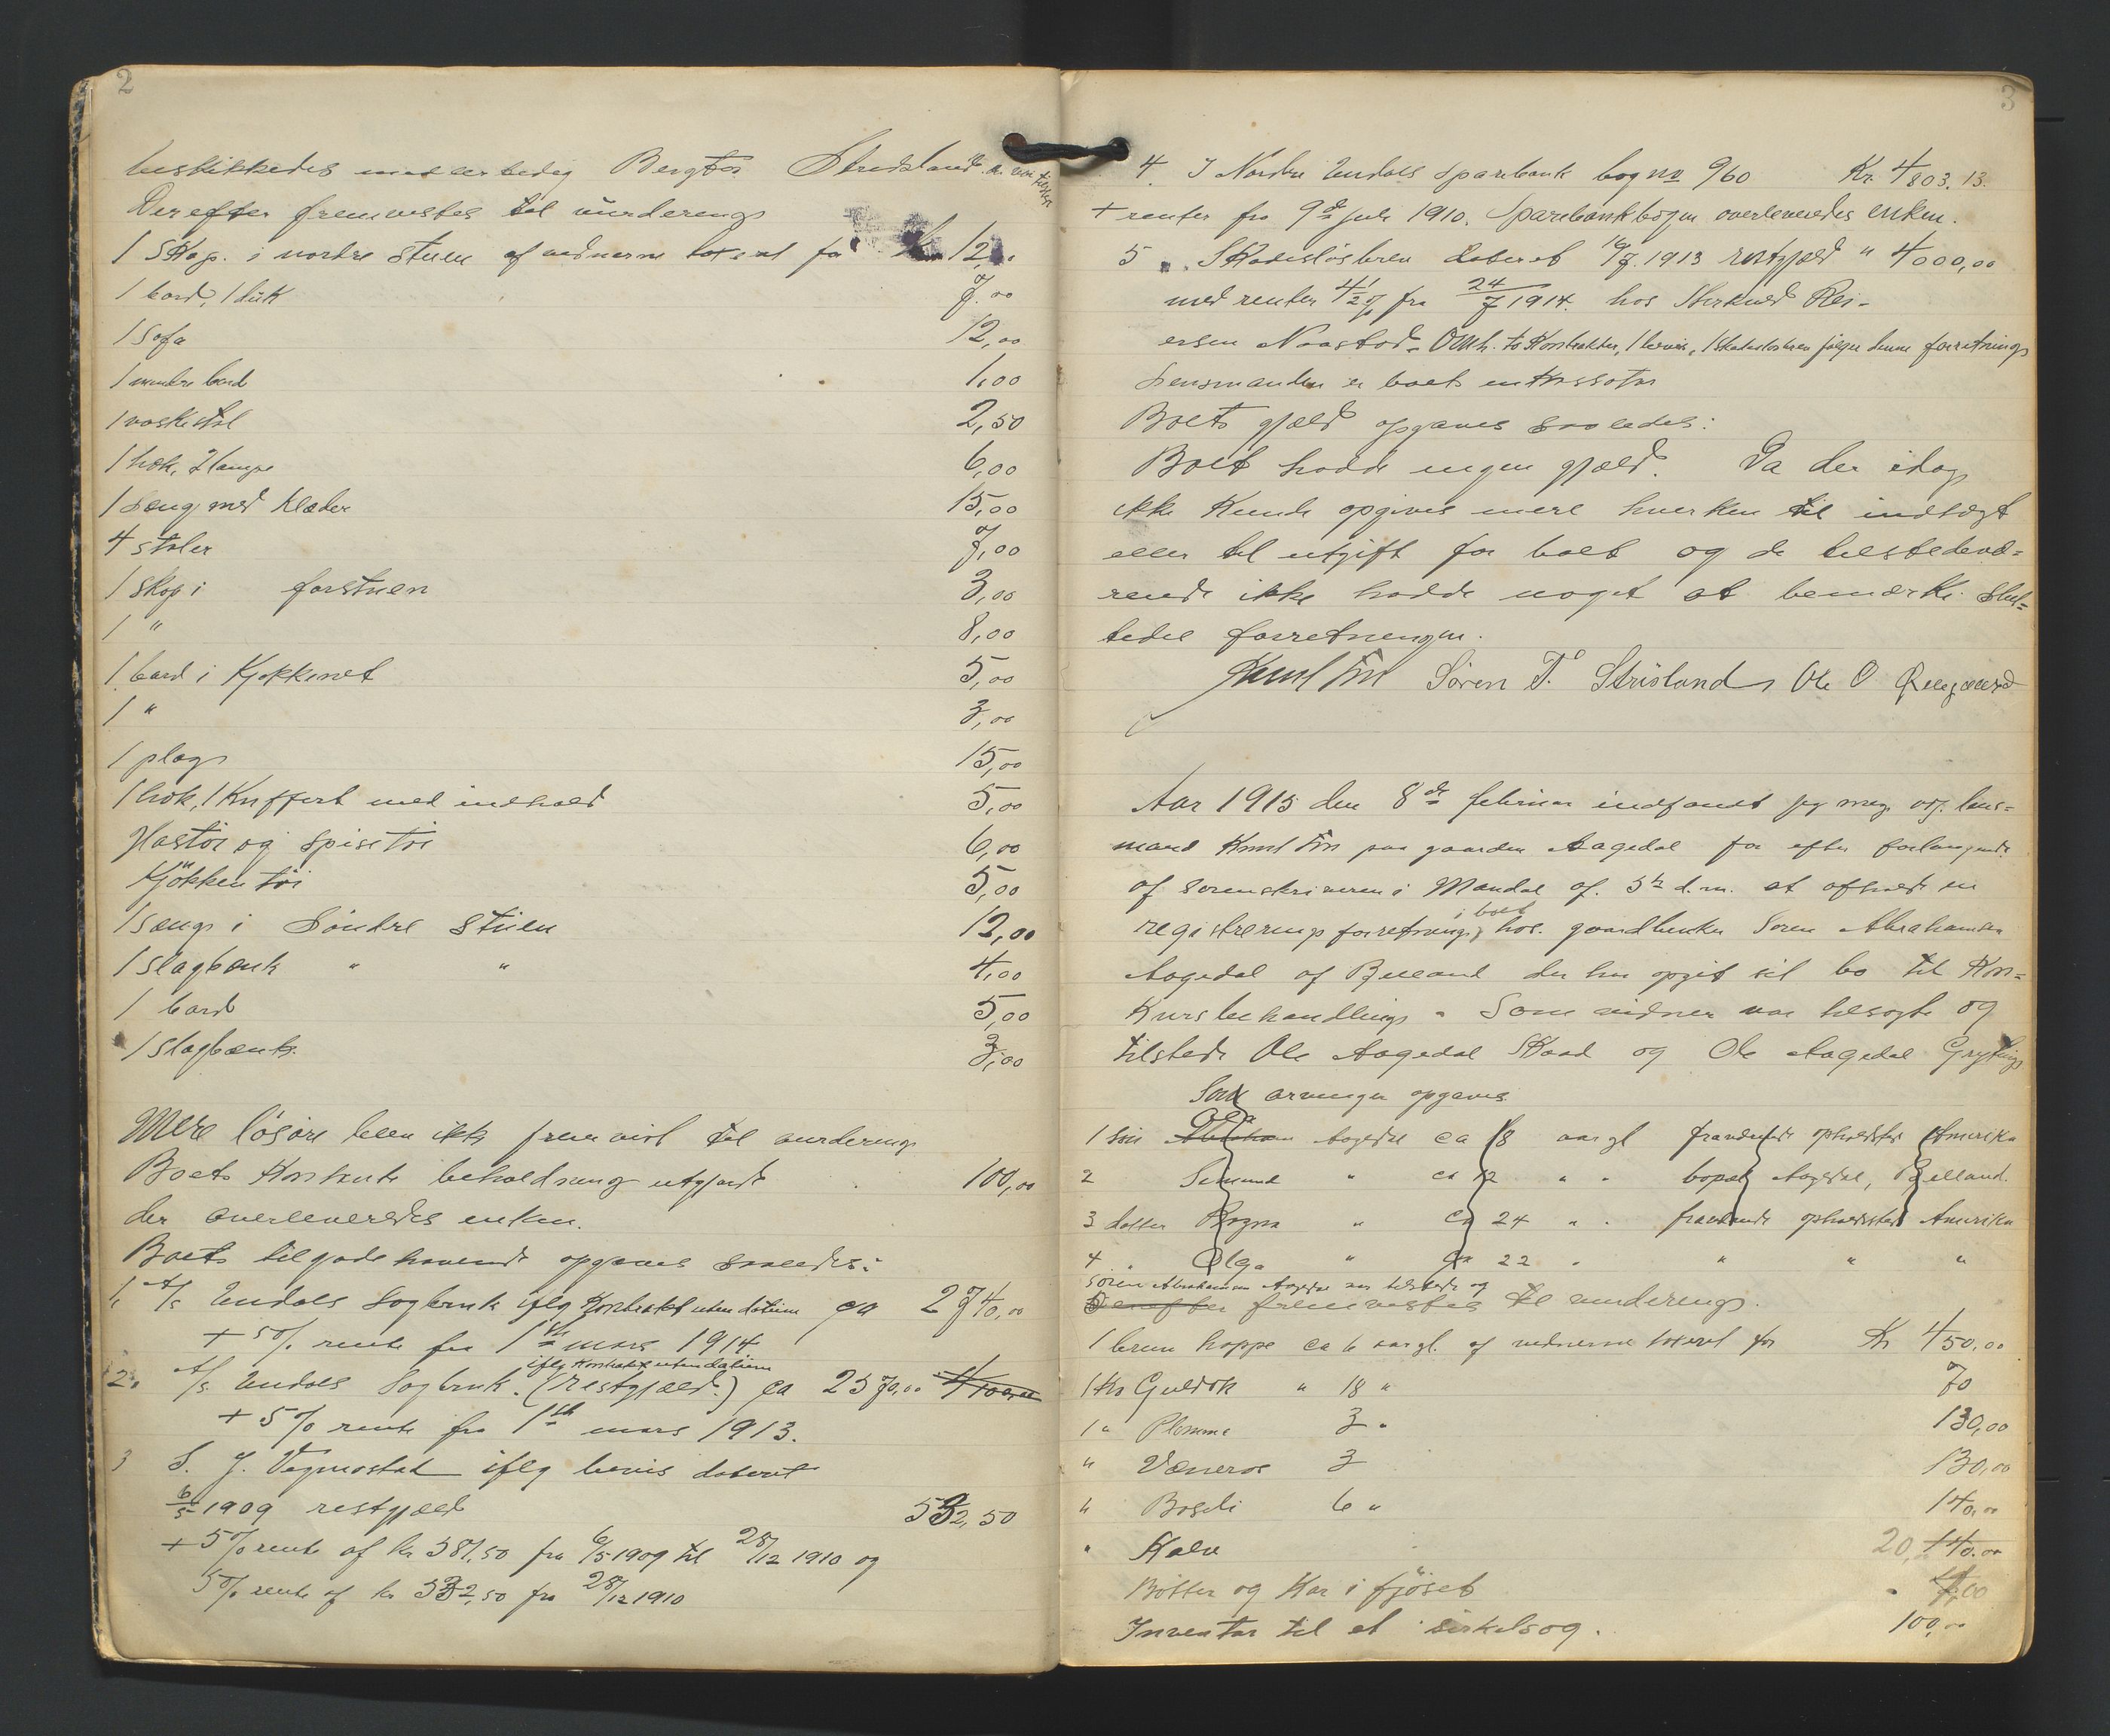 2
beskikkedes
Derefter fremvistes til vurdering
1 Skap i nordre stuen af vidnerne taxeret for Kr 12,00
1 bord, 1 duk 7.00
1 Sofa 12,00
1 mindre bord 1,00
1 vaskestol 2,50
1 hok, 2 lampe 6,00
1 Seng med klæder 15,00
4 stoler 7,00
1 Skap i forstuen 3,00
1 " 8,00
1 bord i Kjøkkenet 5,00
1 " 3,00
1 plog 15,00
1 hok, 1 Kuffert med indhold 5,00
og spisetøi 6,00
Kjøkkentøi 5,00
1 seng i Söndre stuen 12,00
1 slagbænk " " 4,00
1 bord 5,00
1 slagbænk. 3,00
Mere løsøre blev ikke fremvist til vurdering
Boets Kontante beholdning utgjorde 100,00
der overleveredes enken.
Boets tilgodehavende opgaves saaledes:
1. A/s Undals Sagbruk iflg Kontrakt uten datum ca 2740,00
+ 5% rente fra 1ste mars 1914
iflg Kontrakt uten datum
2. A/s Undals Sagbruk. (restgjæld.) ca 2570,00
+ 5% rente fra 1ste mars 1913.
3 S. J. Vegmostad iflg bevis datert
6/5 1909 restgjæld 532,50
+ 5% rente af kr 581,50 fra 6/5 1909 til 28/12 1910 og
5% rente af kr 532,50 fra 28/12 1910
3
4. I Nordre Undals Sparebank bog no 960 Kr. 4803.13.
+ renter fra 9de juli 1910. Sparebankbogen overleveredes enken.
5 Skadesløsbrev dateret 1913 restgjæld " 4000,00
med renter 4 1/2 % fra 24/7 1914. hos Rei-
ersen to Kontrakter, 1 bevis, 1 Skadesløsbrev følger denne forretning
Lensmanden er boets inkassator
Boets gjæld opgaves saaledes:
Boet hadde ingen gjæld. Da der idag
ikke Kunde opgives mere hverken til indtægt
eller til utgift for boet og de tilstedevæ=
rende ikke hadde noget at bemærke slut=
tedes forretningen.
Knut Fin Søren T. Strisland Ole O
Aar 1915 den 8de februar indfandt jeg mig lens=
mand Knut Fin paa gaarden Aagedal for efter forlangende
af sorenskriveren i Mandal af 5te d.m. at afholde en
i boet
registreringsforretning hos gaardbruker Søren Abrahamsen
Aagedal af Bjelland der har opgit sit bo til Kon=
Kursbehandling. Som vidner var tilsagte og
tilstede Ole Aagedal Skaad og Ole Aagedal Gryting
Som arvinger opgaves
1 søn Aagedal ca 18 aar gl fraværende opholdsted Amerika
2 " ca 12 " " bopæl Aagedal, Bjelland.
3 datter Ragna " ca 24 " " fraværende opholdssted Amerika
4 " Olga " ca 22 " " " "
Søren Abrahamsen Aagedal var tilstede og
Derefter fremvistes til vurdering.
1 brun hoppe ca 6 aar gl. af vidnerne taxeret for Kr 450,00
1 Ko Guldok " 18 " 70
1 " Plomma 3 " 130,00
" Væneros 3 130,00
" Bosili 6 " 140,00
" Kalv 20, 140.00
Bøtter og Kar i fjøset
Inventar til et sirkelsag. 100,00